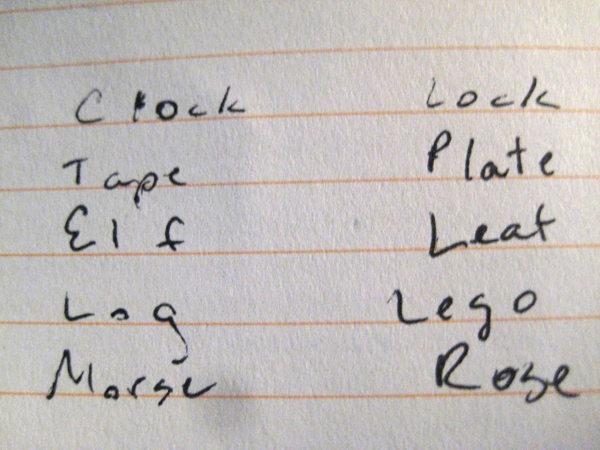 Clock Lock
Tape Plate
Elf Leaf
Log Lego
Morse Rose